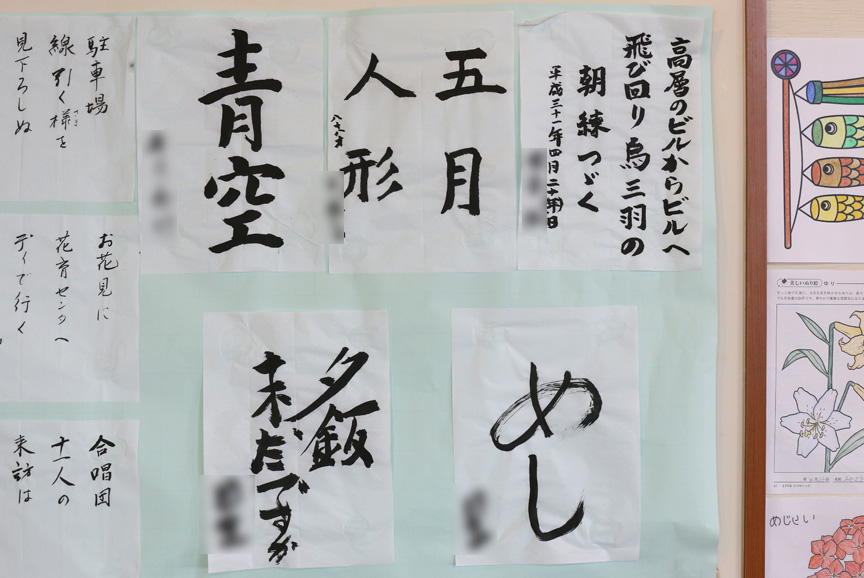 高層のビルからビルへ
飛び回り烏三羽の
朝練つゞく
平成三十一年四月二十日
五月
人形
青空
めし
夕飯
未だですか
駐車場
線引く様を
見下ろしぬ
お花見に
花育センターへ
デイで行く
合唱団
十一人の
来訪は
美しいぬり絵 ユリ